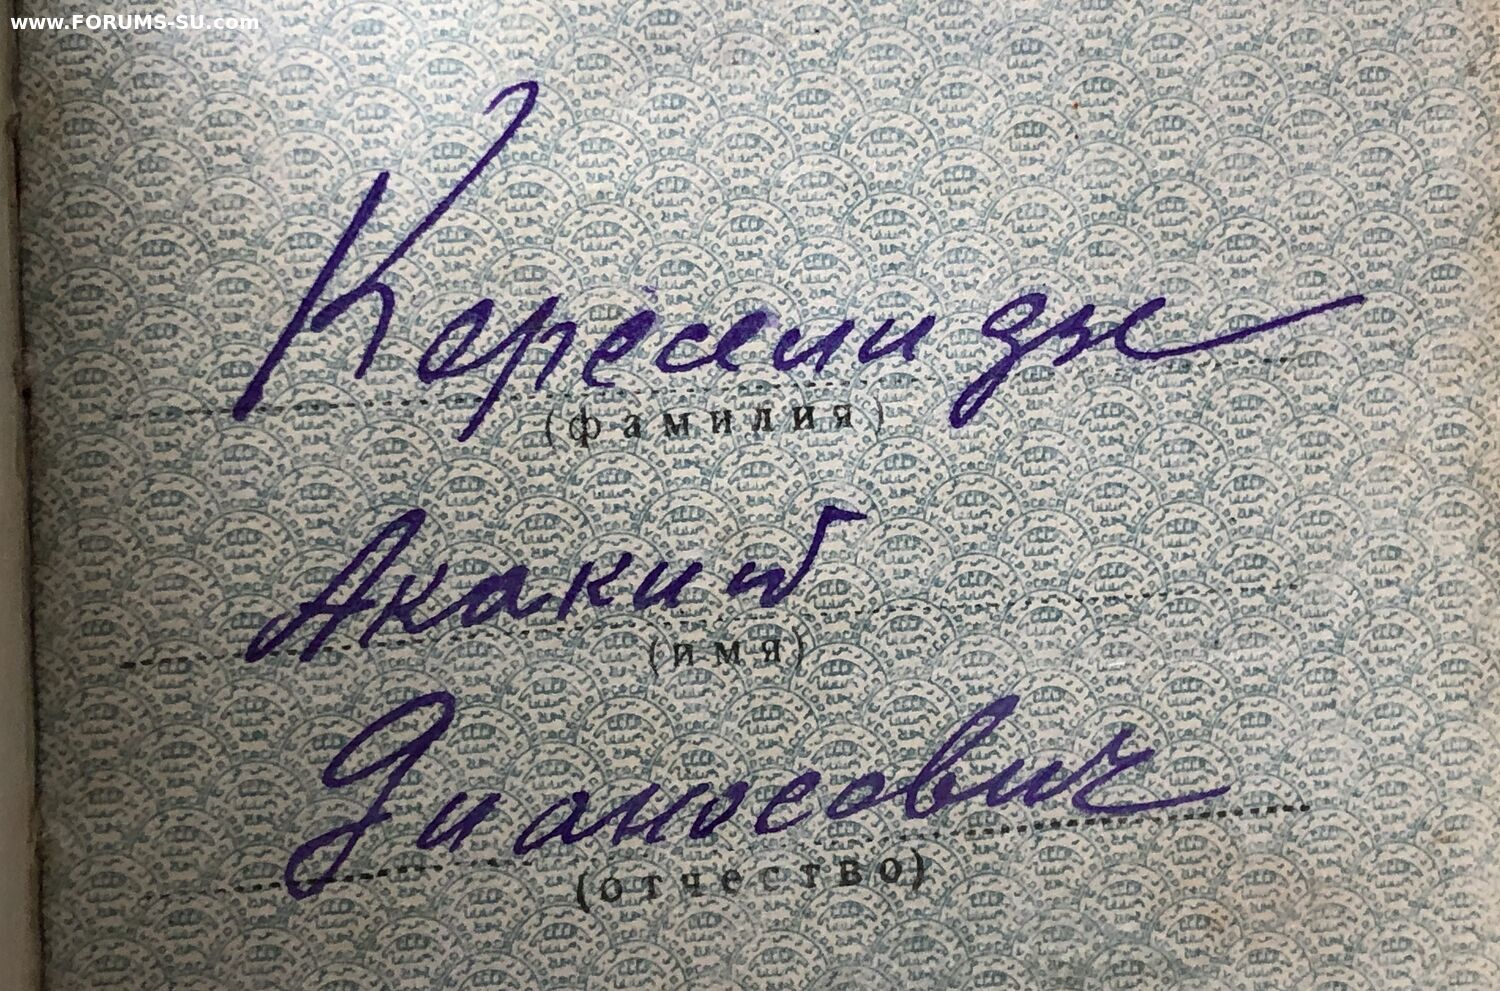 www.FORUMS-SU.com
Кереселидзе
(фамилия)
Акакий
(имя)
Дианосович
(отчество)